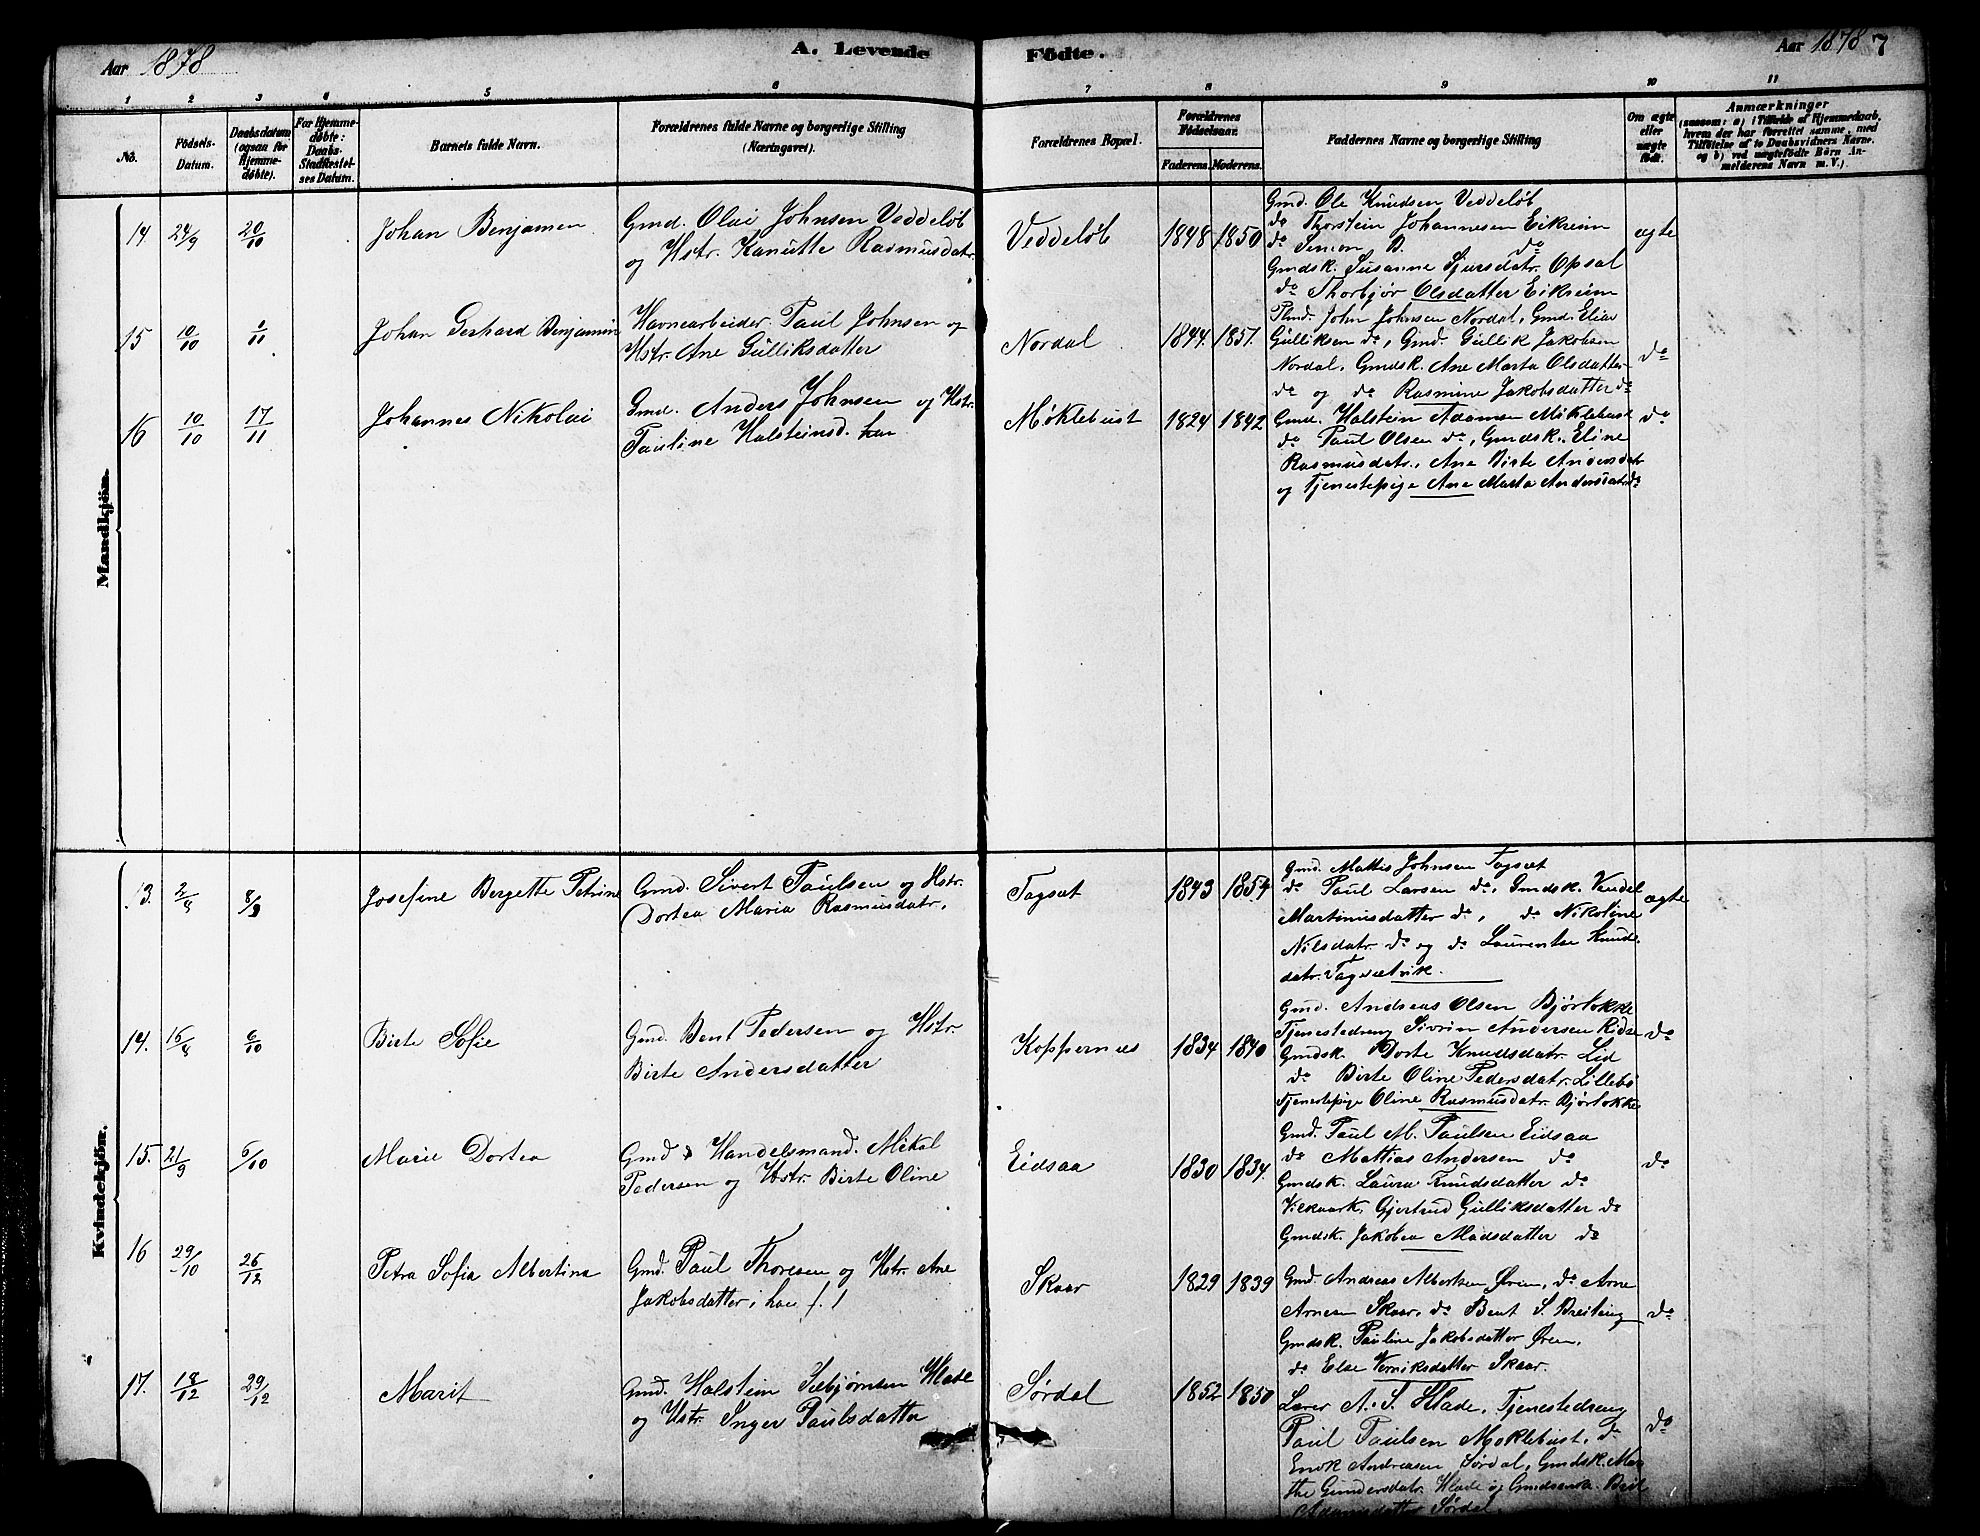 Aar 1878
A. Levende
Födte.
Aar 1878
7
1 2 3 4 5 6 7 8 9 10 11
No.
Födsels-
Datum.
Daabsdatum
(ogsaa for
Hjemme-
døbte).
For Hjemme-
døbte:
Daabs-
Stadfæstel-
ses Datum.
Barnets fulde Navn.
Forældrenes fulde Navne og borgerlige Stilling
(Næringsvei).
Forældrenes Bopæl.
Forældrenes
Fødselsaar.
Faderens. Moderens.
Faddernes Navne og borgerlige Stilling
Om ægte
eller
uægte
født.
Anmærkninger
(saasom: a) i Tilfælde af Hjemmedaab,
hvem der har forrettet samme, med
Tilføielse af to Daabsvidners Navne.
og b) ved uægtefødte Börn An-
melderens Navn m. V.).
Mandkjön.
14. 24/9 20/10
Johan Benjamen
Gmd. Olai Johnsen Veddeløb
og Hstr. Kanutte Rasmusdatr.
Veddeløb 1848 1850
Gmd. Ole Knudsen Veddeløb
do Thorstein Johannesen Eikreim
do Simon D. do
Gmdsk. Susanne Sjursdatr. Opsal
do Thorbjør Olsdatter Eikreim
ægte
15 10/10 1/11
Johan Gerhard Benjamin
Havnearbeider Paul Johnsen og
Hstr. Ane Gulliksdatter
Nordal 1844. 1857.
Plmd. John Johnsen Nordal, Gmd. Elias
Gulliksen do, Gmd. Gullik Jakobsen
Nordal, Gmdsk. Ane Marta Olsdatter
do og do Rasmine Jakobsdatter do
do
16 10/10 17/11
Johannes Nikolai
Gmd. Anders Johnsen og Hstr.
Pauline Halsteinsd. han
Møklebust 1824 1842
Gmd. Halstein Adamsen Møklebust
do Paul Olsen do, Gmdsk. Eline
Rasmusdatr., Ane Birte Andersdatr
og Tjenestepige Ane Marta Andersdatr do
do
Kvindekjön.
13. 2/8 8/9
Josefine Bergette Petrine
Gmd. Sivert Paulsen og Hstr.
Dortea Maria Rasmusdatr.
Tagsæt 1843 1854
Gmd. Mattis Johnsen Tagsæt
do Paul Larsen do, Gmdsk. Vendel
Martinusdatter do, do Nikoline
Nilsdatr. do og do Laurentse Knuds
datr. Tagsætvik.
ægte
14. 16/8 6/10
Birte Sofie
Gmd. Bent Pedersen og Hstr.
Birte Andersdatter
Koppernæs 1834 1840
Gmd. Andreas Olsen Bjørlokke
Tjenestedreng Sivrin Andersen
Gmdsk. Dorte Knudsdatr. Lid
do Birte Oline Pedersdatr. Lillebø
Tjenestepige Oline Rasmusdatr. Bjørlokke
do
15. 21/9 6/10
Marie Dortea
Gmd & Handelsmand. Mikal
Pedersen og Hstr. Birte Oline
Eidsaa 1830 1834.
Gmd. Paul M. Paulsen Eidsaa
do Mattias Andersen do
Gmdsk. Laura Knudsdatter do
Gjertrud Gulliksdatter do
Gmdsk. Jakobea Madsdatter do
do
16 29/10 26/12
Petra Sofia Albertina
Gmd. Paul Thoresen og Hstr. Ane
Jakobsdatter
Skaar 1829 1839
Gmd. Andreas Albertsen Øren, do Arne
Arnesen Skaar, do Bent S. Breiteig
Gmdsk. Pauline Jakobsdatter Øren,
do Else Verniksdatter Skaar.
do
17. 18/12 29/12
Marit
Gmd. Halstein Sæbjørnsen Hlade
og Hstr. Inger Paulsdatter
Sørdal 1852 1850
Lærer A. S. Hlade, Tjenestedreng
Paul Paulsen Moklebust, do
Enok Andreasen Sørdal, Gmdsk. Mar
the Gundersdatr. Hlade og
Adamsdatter Sørdal
do